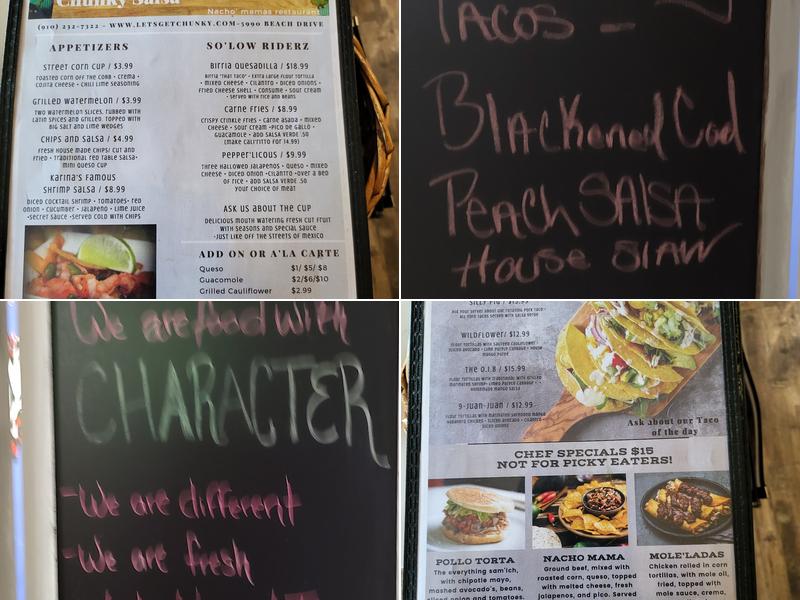 Chunky Salsa
Nacho' mamas restaurant
(910) 232-7322 - WWW.LETSGETCHUNKY.COM-5990 BEACH DRIVE
APPETIZERS
STREET CORN CUP / $3.99
ROASTED CORN OFF THE COBB • CREMA •
COJITA CHEESE • CHILI LIME SEASONING
GRILLED WATERMELON / $3.99
TWO WATERMELON SLICES, RUBBED WITH
LATIN SPICES AND GRILLED. TOPPED WITH
BIG SALT AND LIME WEDGES
CHIPS AND SALSA / $4.99
FRESH HOUSE MADE CHIPS/ CUT AND
FRIED • TRADITIONAL RED TABLE SALSA•
MINI QUESO CUP
KARINA'S FAMOUS
SHRIMP SALSA / $8.99
DICED COCKTAIL SHRIMP • TOMATOES• RED
ONION • CUCUMBER • JALAPENO • LIME JUICE
•SECRET SAUCE •SERVED COLD WITH CHIPS
SO'LOW RIDERZ
BIRRIA QUESADILLA / $18.99
BIRRIA "THAT TACO" • EXTRA LARGE FLOUR TORTILLA
• MIXED CHEESE • CILANTRO • DICED ONIONS •
FRIED CHEESE SHELL • CONSUME • SOUR CREAM
• SERVED WITH RICE AND BEANS
CARNE FRIES / $8.99
CRISPY CRINKLE FRIES • CARNE ASADA • MIXED
CHEESE • SOUR CREAM •PICO DE GALLO •
GUACAMOLE • ADD SALSA VERDE .50
(MAKE CALI'TITTO FOR 14.99)
PEPPER'LICIOUS / $9.99
THREE HALLOWED JALAPENOS • QUESO • MIXED
CHEESE • DICED ONION •CILANTRO •OVER A BED
OF RICE • ADD SALSA VERDE .50
YOUR CHOICE OF MEAT
ASK US ABOUT THE CUP
DELICIOUS MOUTH WATERING FRESH CUT FRUIT
WITH SEASONS AND SPECIAL SAUCE
•JUST LIKE OFF THE STREETS OF MEXICO
ADD ON OR A'LA CARTE
Queso $1/ $5/ $8
Guacomole $2/$6/$10
Grilled Cauliflower $2.99
TACOS -
BlAckened Cod
PEACH SALSA
House SlAW
We are food with
CHARACTER
- We are different
- We are fresh
SILLY PIG / $13.99
WILDFLOWER/ $12.99
FLOUR TORTILLAS WITH SAUTEED CAULIFLOWER •
SLICED AVOCADO • LIME PICKLE CABBAGE • HOUSE
MANGO PUREE
THE O.I.B / $15.99
HOMEMADE MANGO SALSA
9-JUAN-JUAN / $12.99
Ask about our Taco
of the day
CHEF SPECIALS $15
NOT FOR PICKY EATERS!
POLLO TORTA
The everything sam'ich,
with chipotle mayo,
mashed avocado's, beans,
sliced onion and tomatoes.
NACHO MAMA
Ground beef, mixed with
roasted corn, queso, topped
with melted cheese, fresh
jalapenos, and pico. Served
MOLE'LADAS
Chicken rolled in corn
tortillas, with mole oil,
fried, topped with
mole sauce, crema,